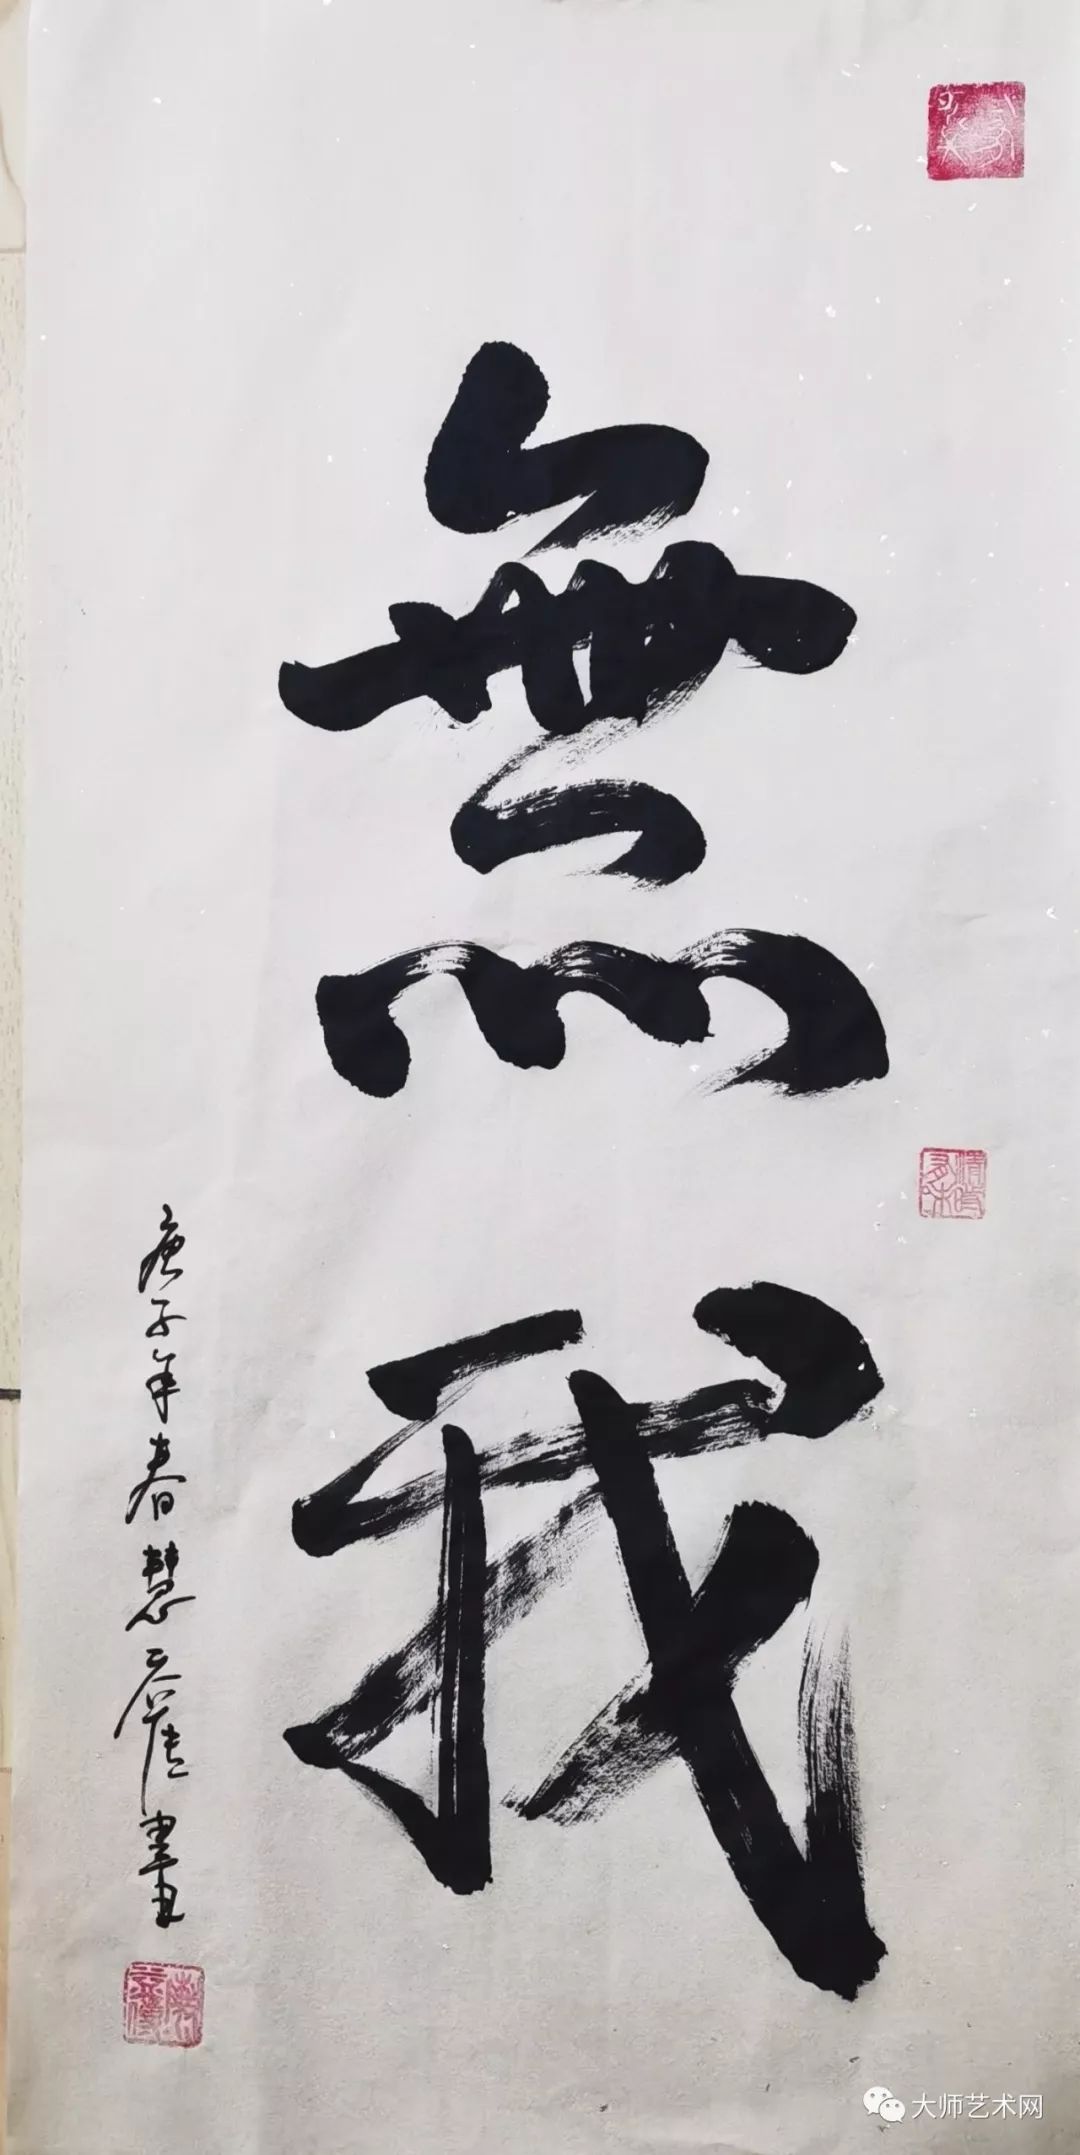 無我
庚子年春慧天崖書
大师艺术网